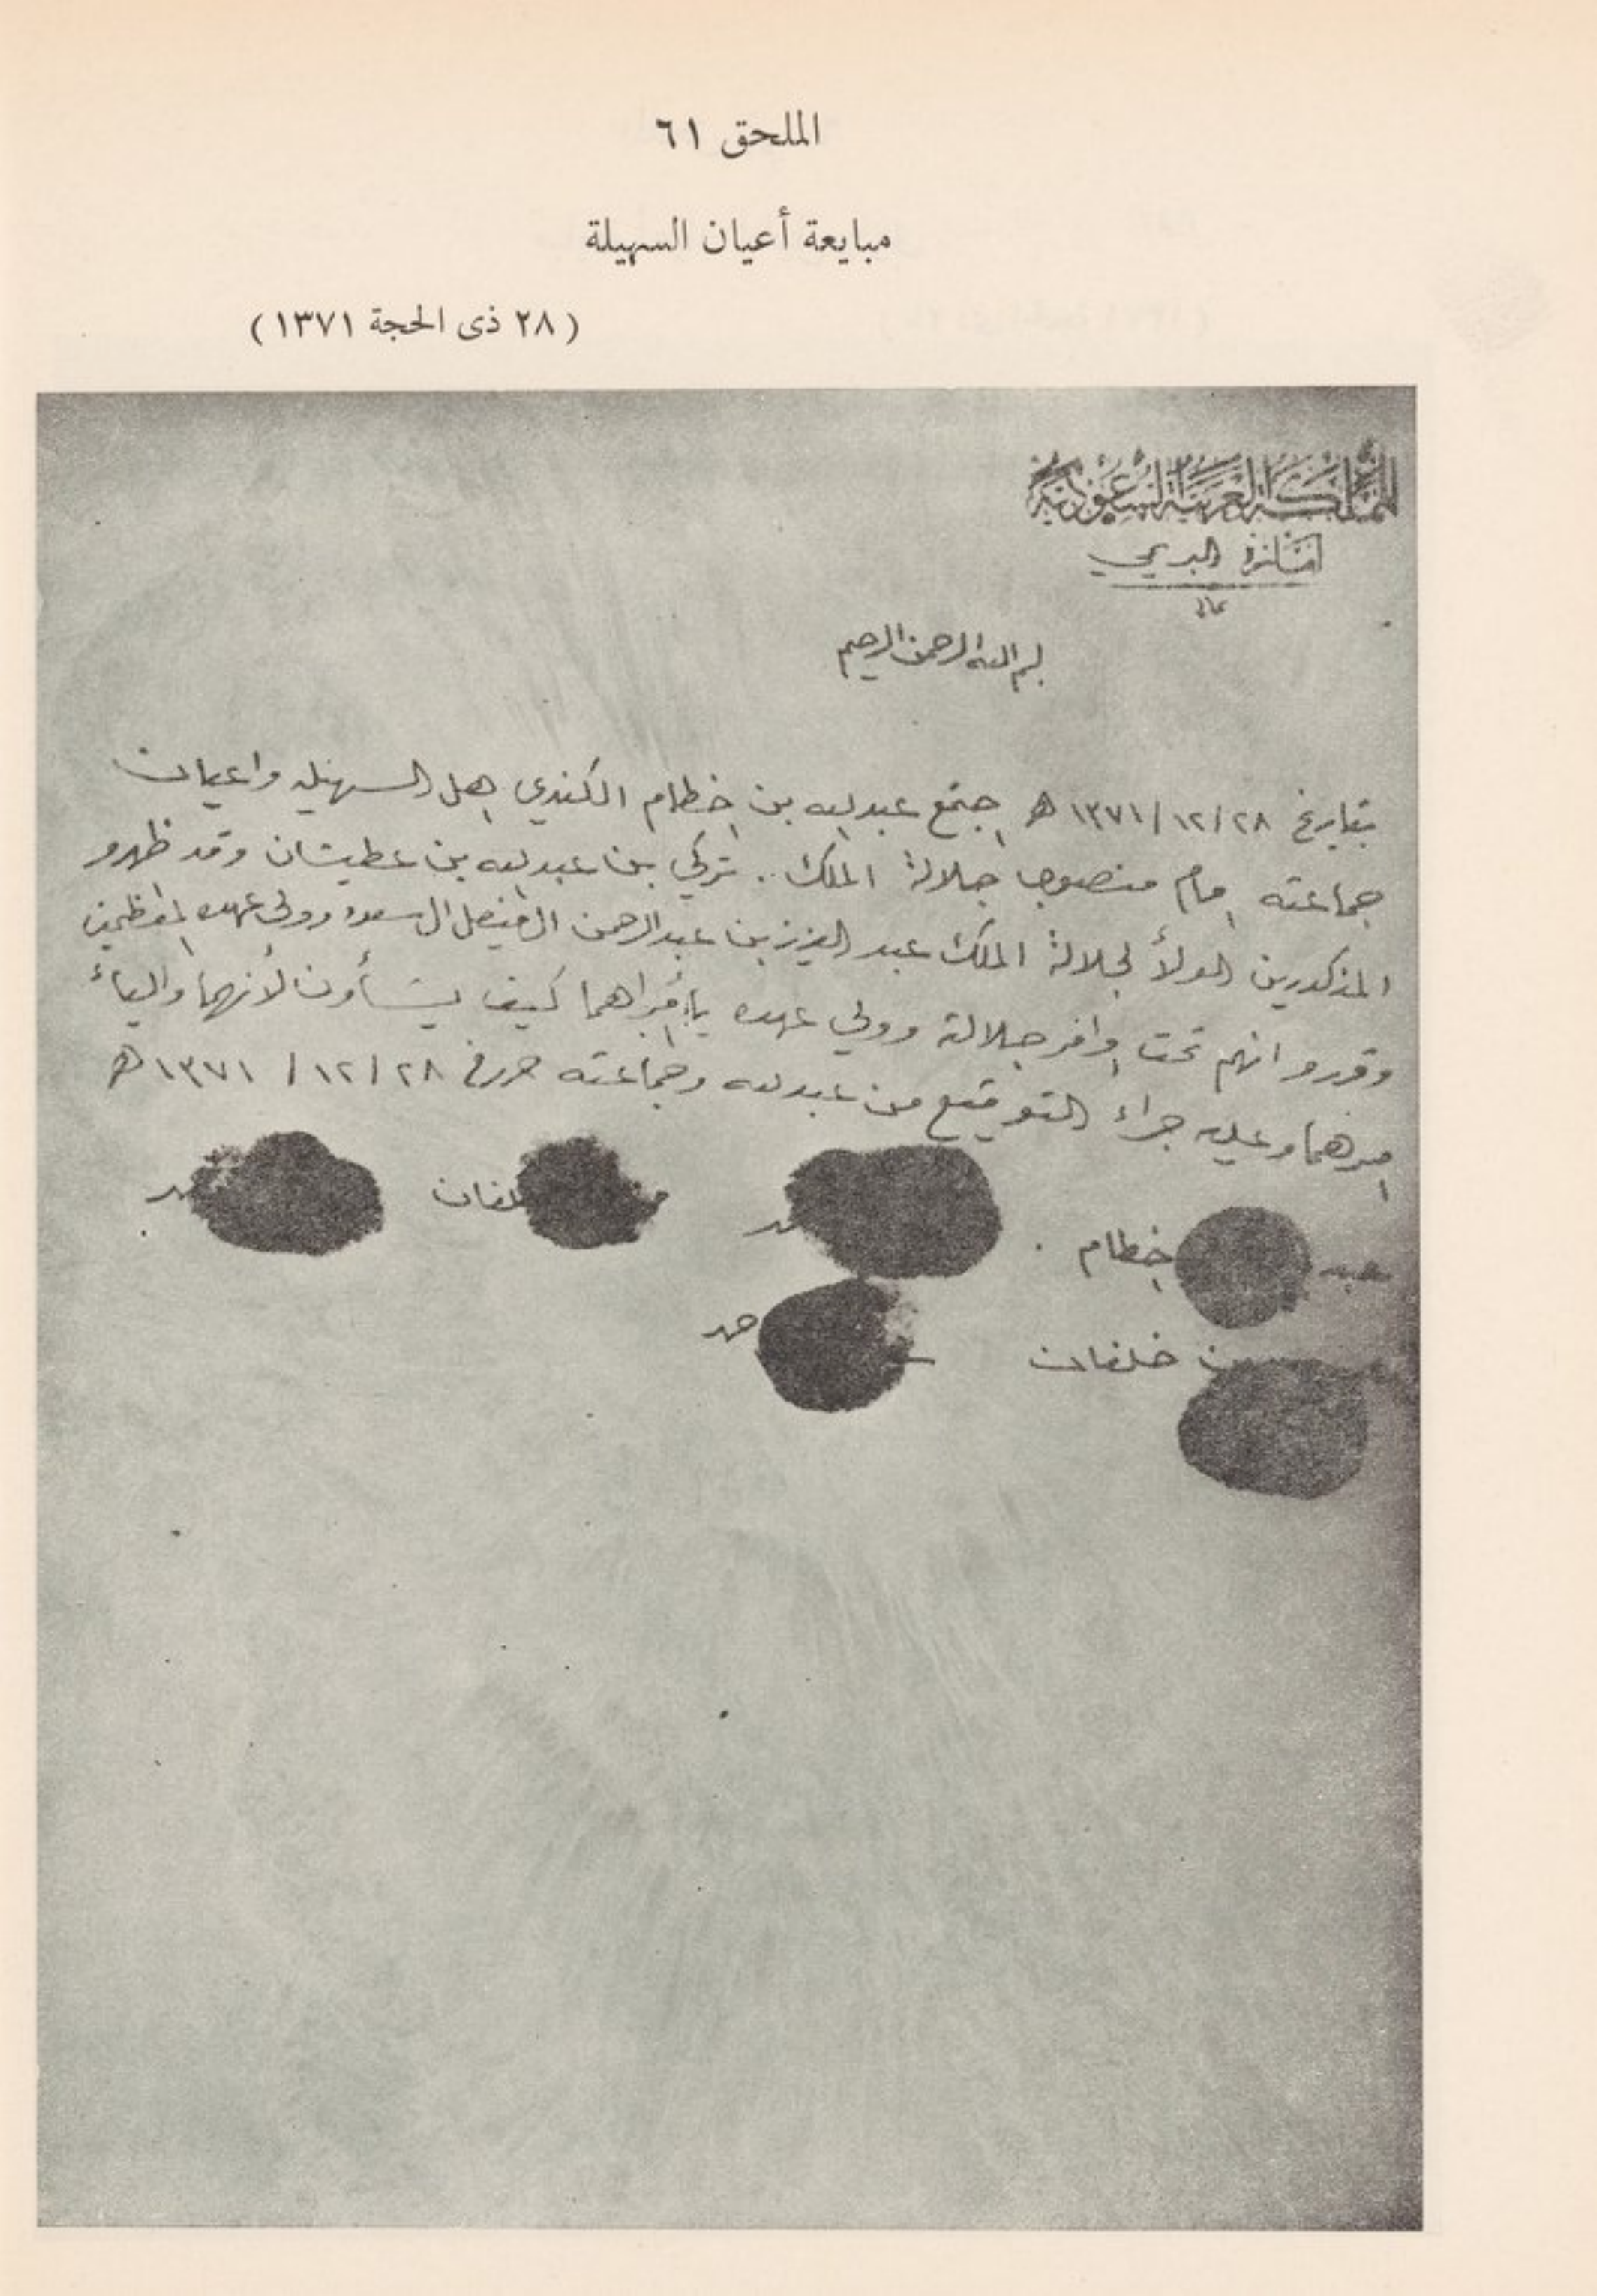 الملحق ٦١
مبايعة أعيان السهيلة
(٢٨ ذى الحجة ١٣٧١)
المملكة العربية السعودية
البريمي
بسم الله الرحمن الرحيم
بتايرخ ٢٨/١٢/١٣٧١ ه اجتمع عبد الله بن خطام الكندي اهل السهيله واعيان
جماعته امام منصوب جلالة الملك .. تركي بن عبد الله بن عطيشان وقد ظهرو
المذكدرين الولأ لجلالة الملك عبد العزيز بن عبد الرحمن الفيصل ال سعود وولي عهده المعظمين
وقررو انهم تحت اوامر جلالة وولي عهده كيف يشأون لأنهما
امرهما وعليه جراء التوقيع من عبد الله وجماعته ٢٨/١٢/١٣٧١ ه
خطام
خلفان
حمد